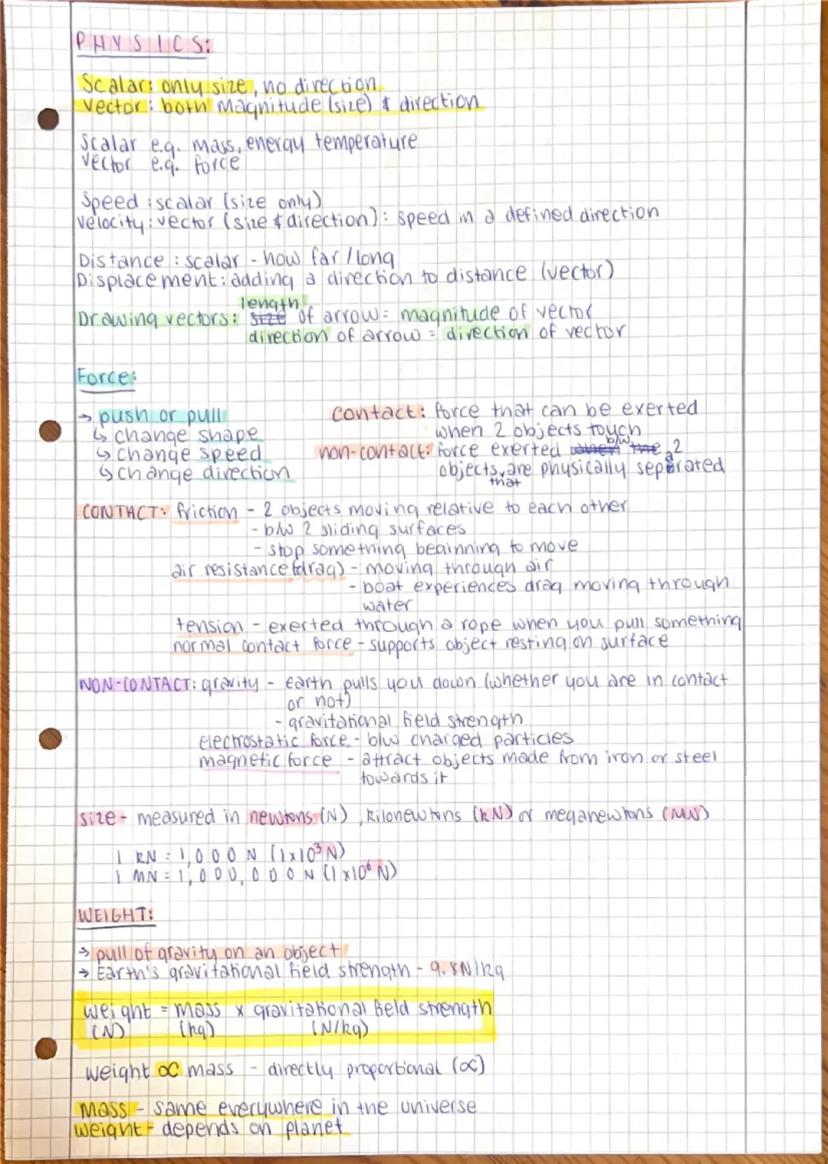 PHYSICS:
Scalar: only size, no direction
Vector: both magnitude (size) & direction
Scalar e.g. mass, energy temperature
Vector e.g. force
Speed: scalar (size only)
Velocity: vector (size & direction): speed in a defined direction
Distance: scalar - how far/long
Displacement: adding a direction to distance (vector)
length
Drawing vectors: size of arrow = magnitude of vector
direction of arrow = direction of vector
Force:
→ push or pull
↳ change shape
↳ change speed
↳ change direction
contact: force that can be exerted
when 2 objects touch
non-contact: force exerted when the b/w 2
objects that are physically separated
CONTACT: friction - 2 objects moving relative to each other
- b/w 2 sliding surfaces
- stop something beginning to move
air resistance (drag) - moving through air
- boat experiences drag moving through
water
tension - exerted through a rope when you pull something
normal contact force - supports object resting on surface
NON-CONTACT: gravity - earth pulls you down (whether you are in contact
or not)
- gravitational field strength
electrostatic force - b/w charged particles
magnetic force - attract objects made from iron or steel
towards it
size - measured in newtons (N), kilonewtons (kN) or meganewtons (MN)
1 kN = 1,000 N (1x10³N)
1 MN = 1,000,000 N (1x10⁶N)
WEIGHT:
→ pull of gravity on an object
→ Earth's gravitational field strength - 9.8N/kg
weight = mass x gravitational field strength
(N) (kg) (N/kg)
weight ∝ mass - directly proportional (∝)
mass - same everywhere in the universe
weight - depends on planet